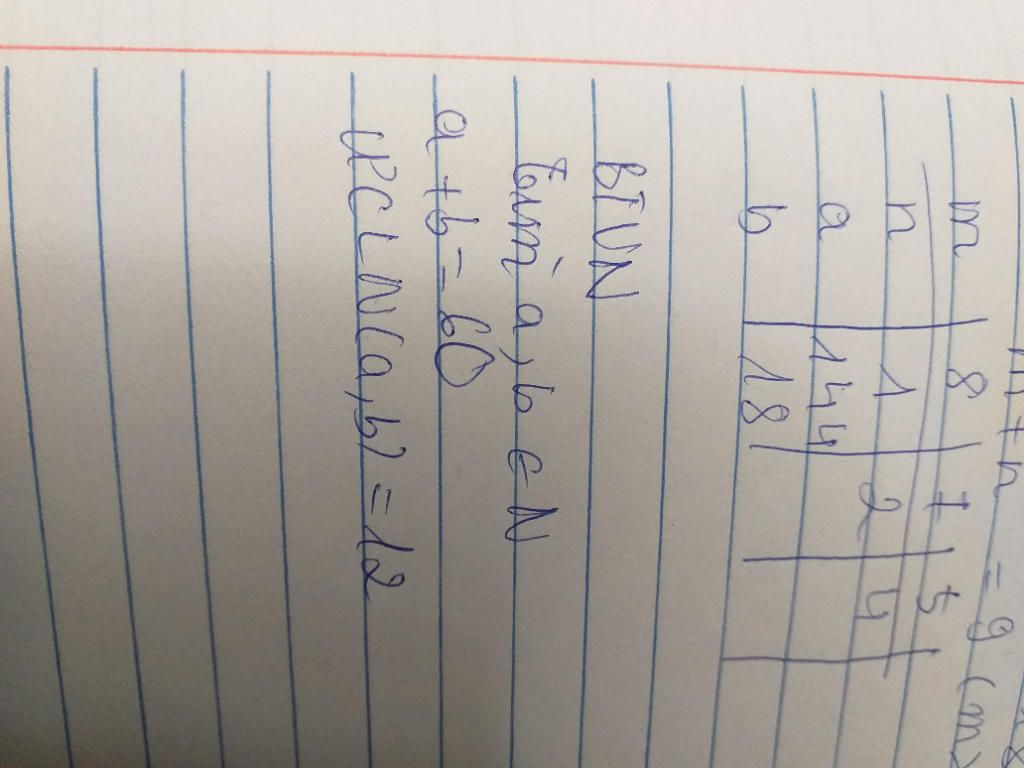 m + n = 9 (m>
m 8 7 5
n 1 2 4
a 144
b 18
BTVN
tìm a, b ∈ N
a + b = 60
ƯCLN(a, b) = 12